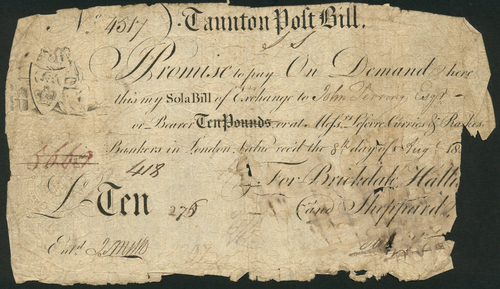 No 4517 Taunton Post Bill.
I Promise to pay On Demand here
this my Sola Bill of Exchange to John Esqr
or Bearer Ten Pounds or at Messrs Lefevre Curries & Raikes
Bankers in London Value recd the 8th day of Augt 18
3663
418
For Brickdale Halli
£ Ten 276
and Sheppard
Entd